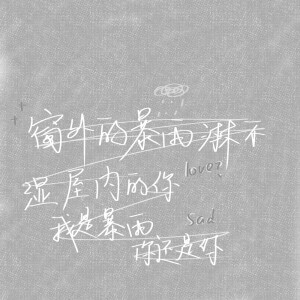 窗外的暴雨淋不
湿屋内的你
lover
我是暴雨
sad
你还是你